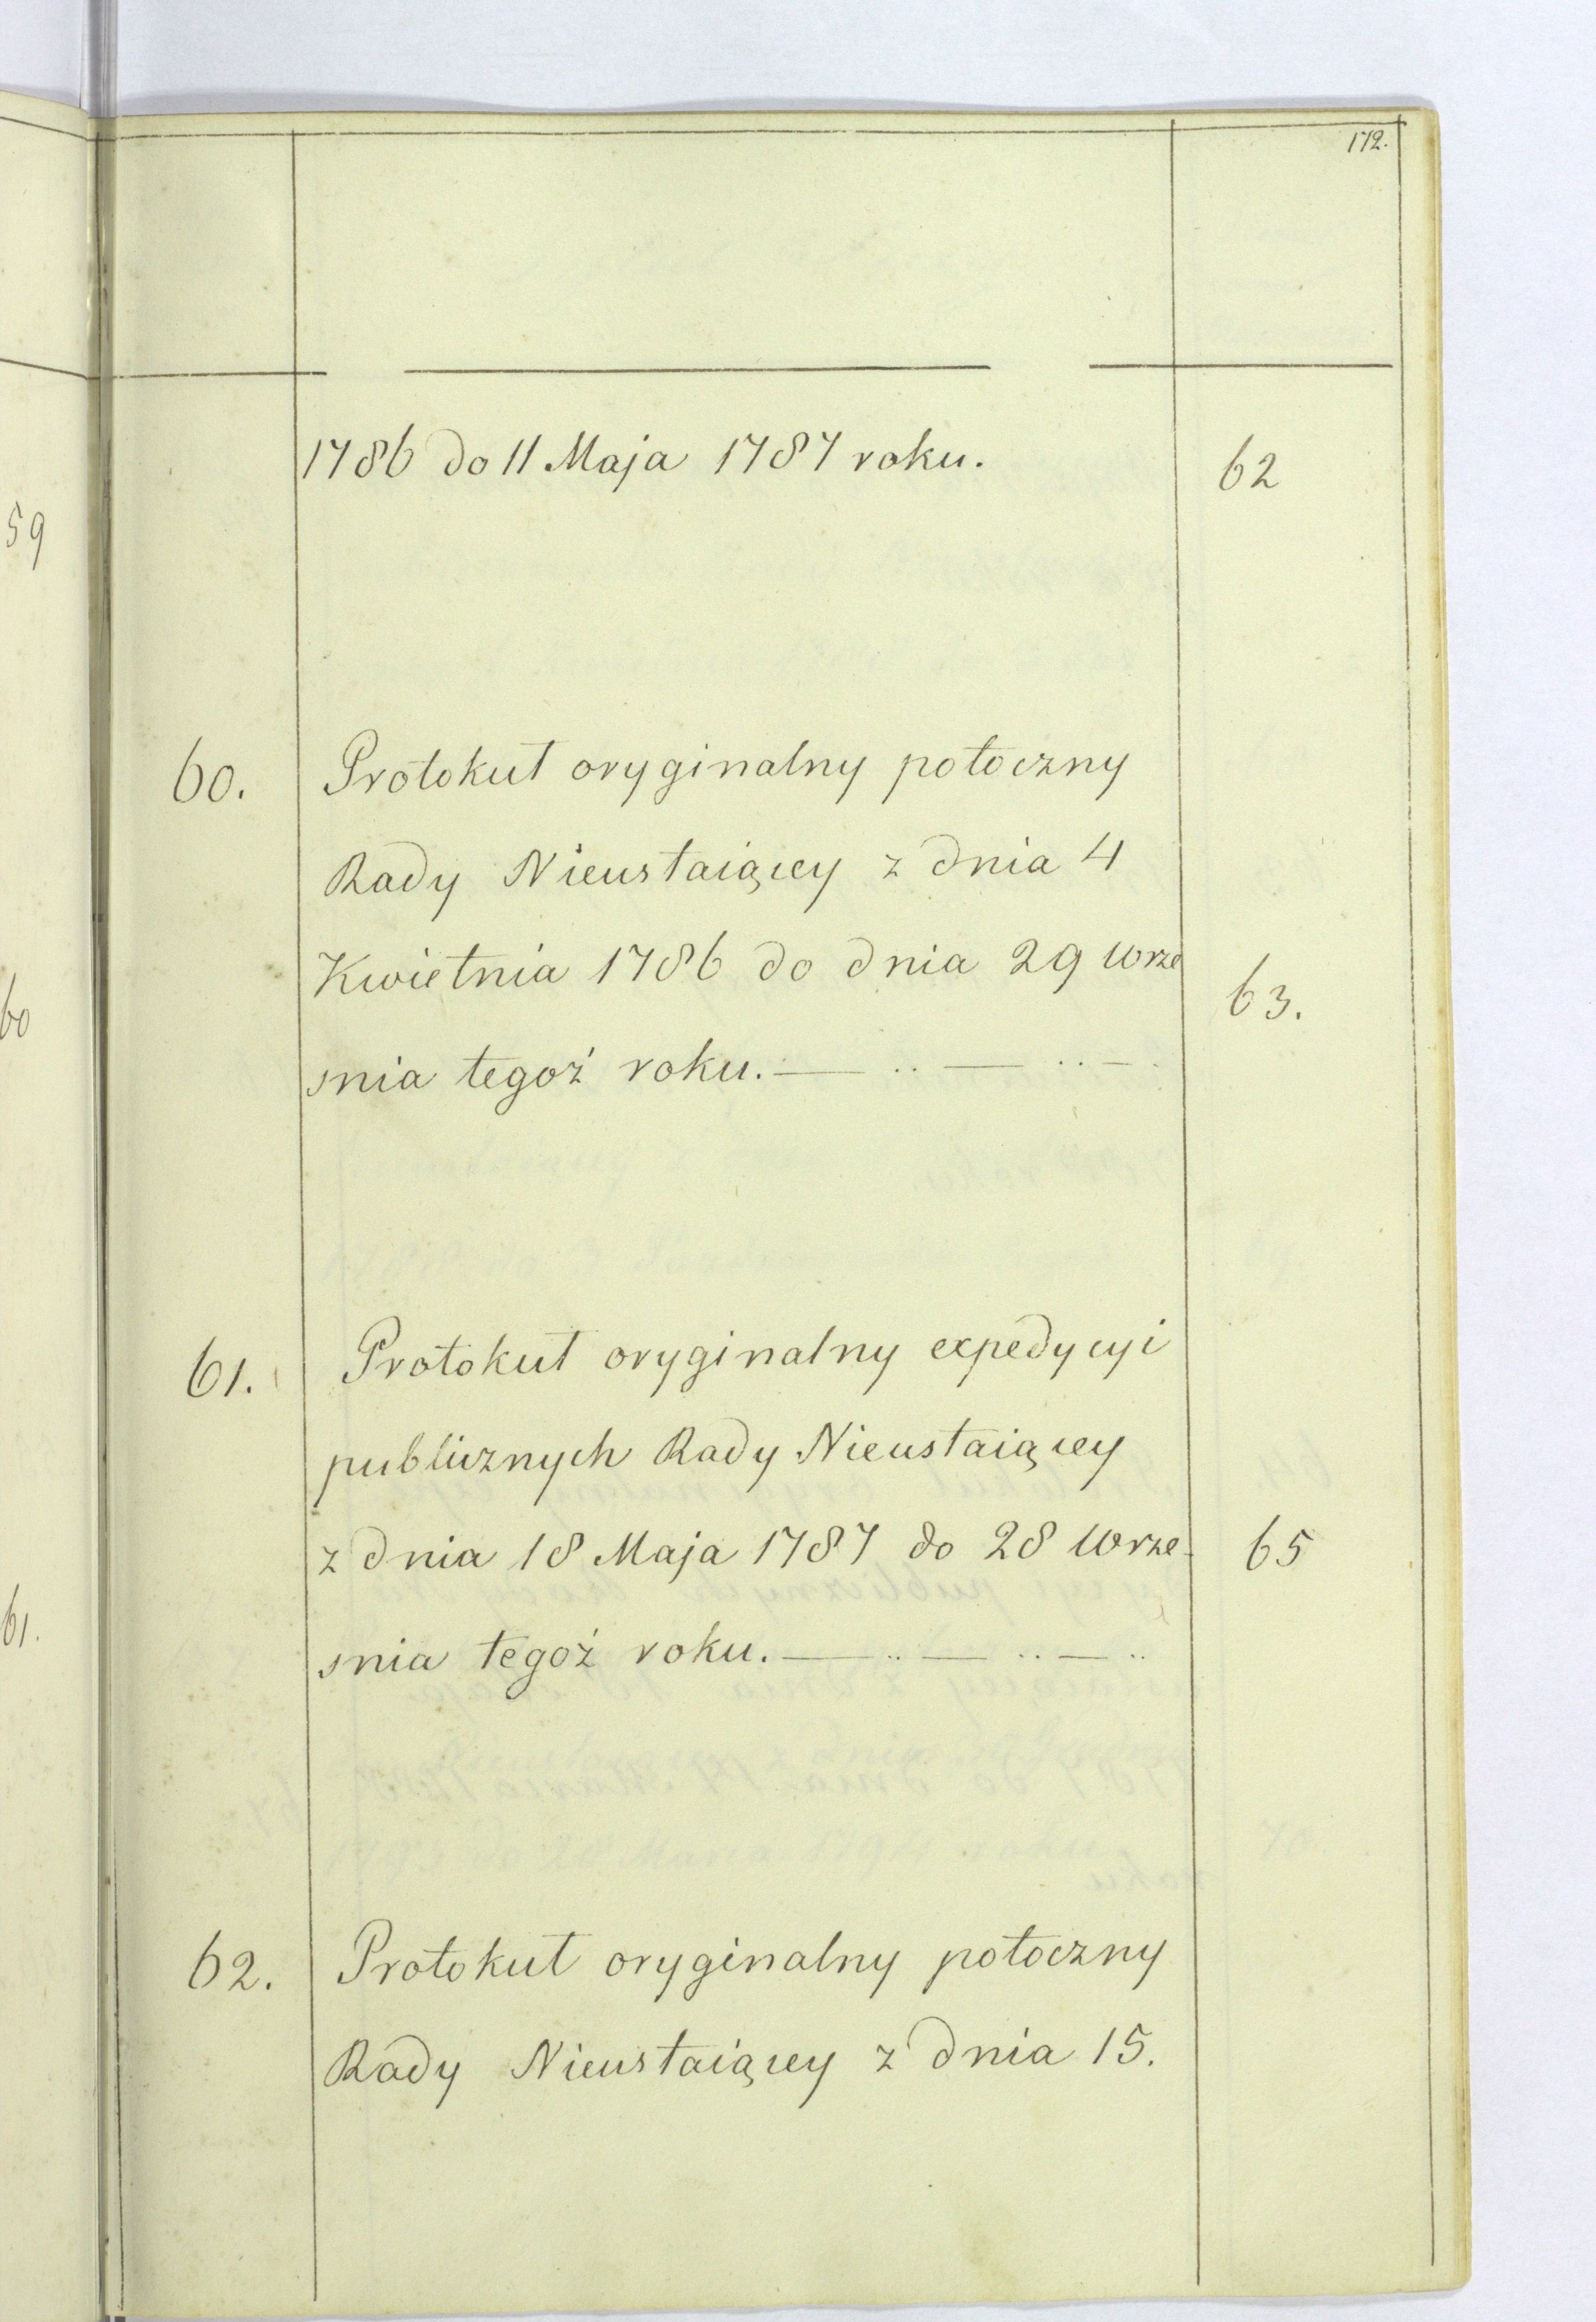 172.
59
60
61.
1786 do 11 Maja 1787 roku.
62
60.
Protokuł oryginalny potoczny
Rady Nieustaiącey z dnia 4
Kwietnia 1786 do dnia 29 Wrze
63.
snia tegoż roku.
61.
Protokuł oryginalny expedycyi
publicznych Rady Nieustaiącey
z dnia 18 Maja 1787 do 28 Wrze-
65
snia tegoż roku.
62.
Protokuł oryginalny potoczny
Rady Nieustaiącey z dnia 15.